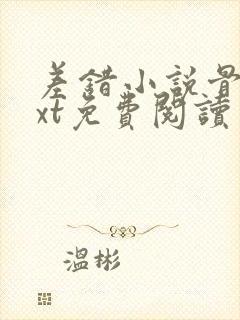 差錯小說最
xt免費閱讀
溫彬